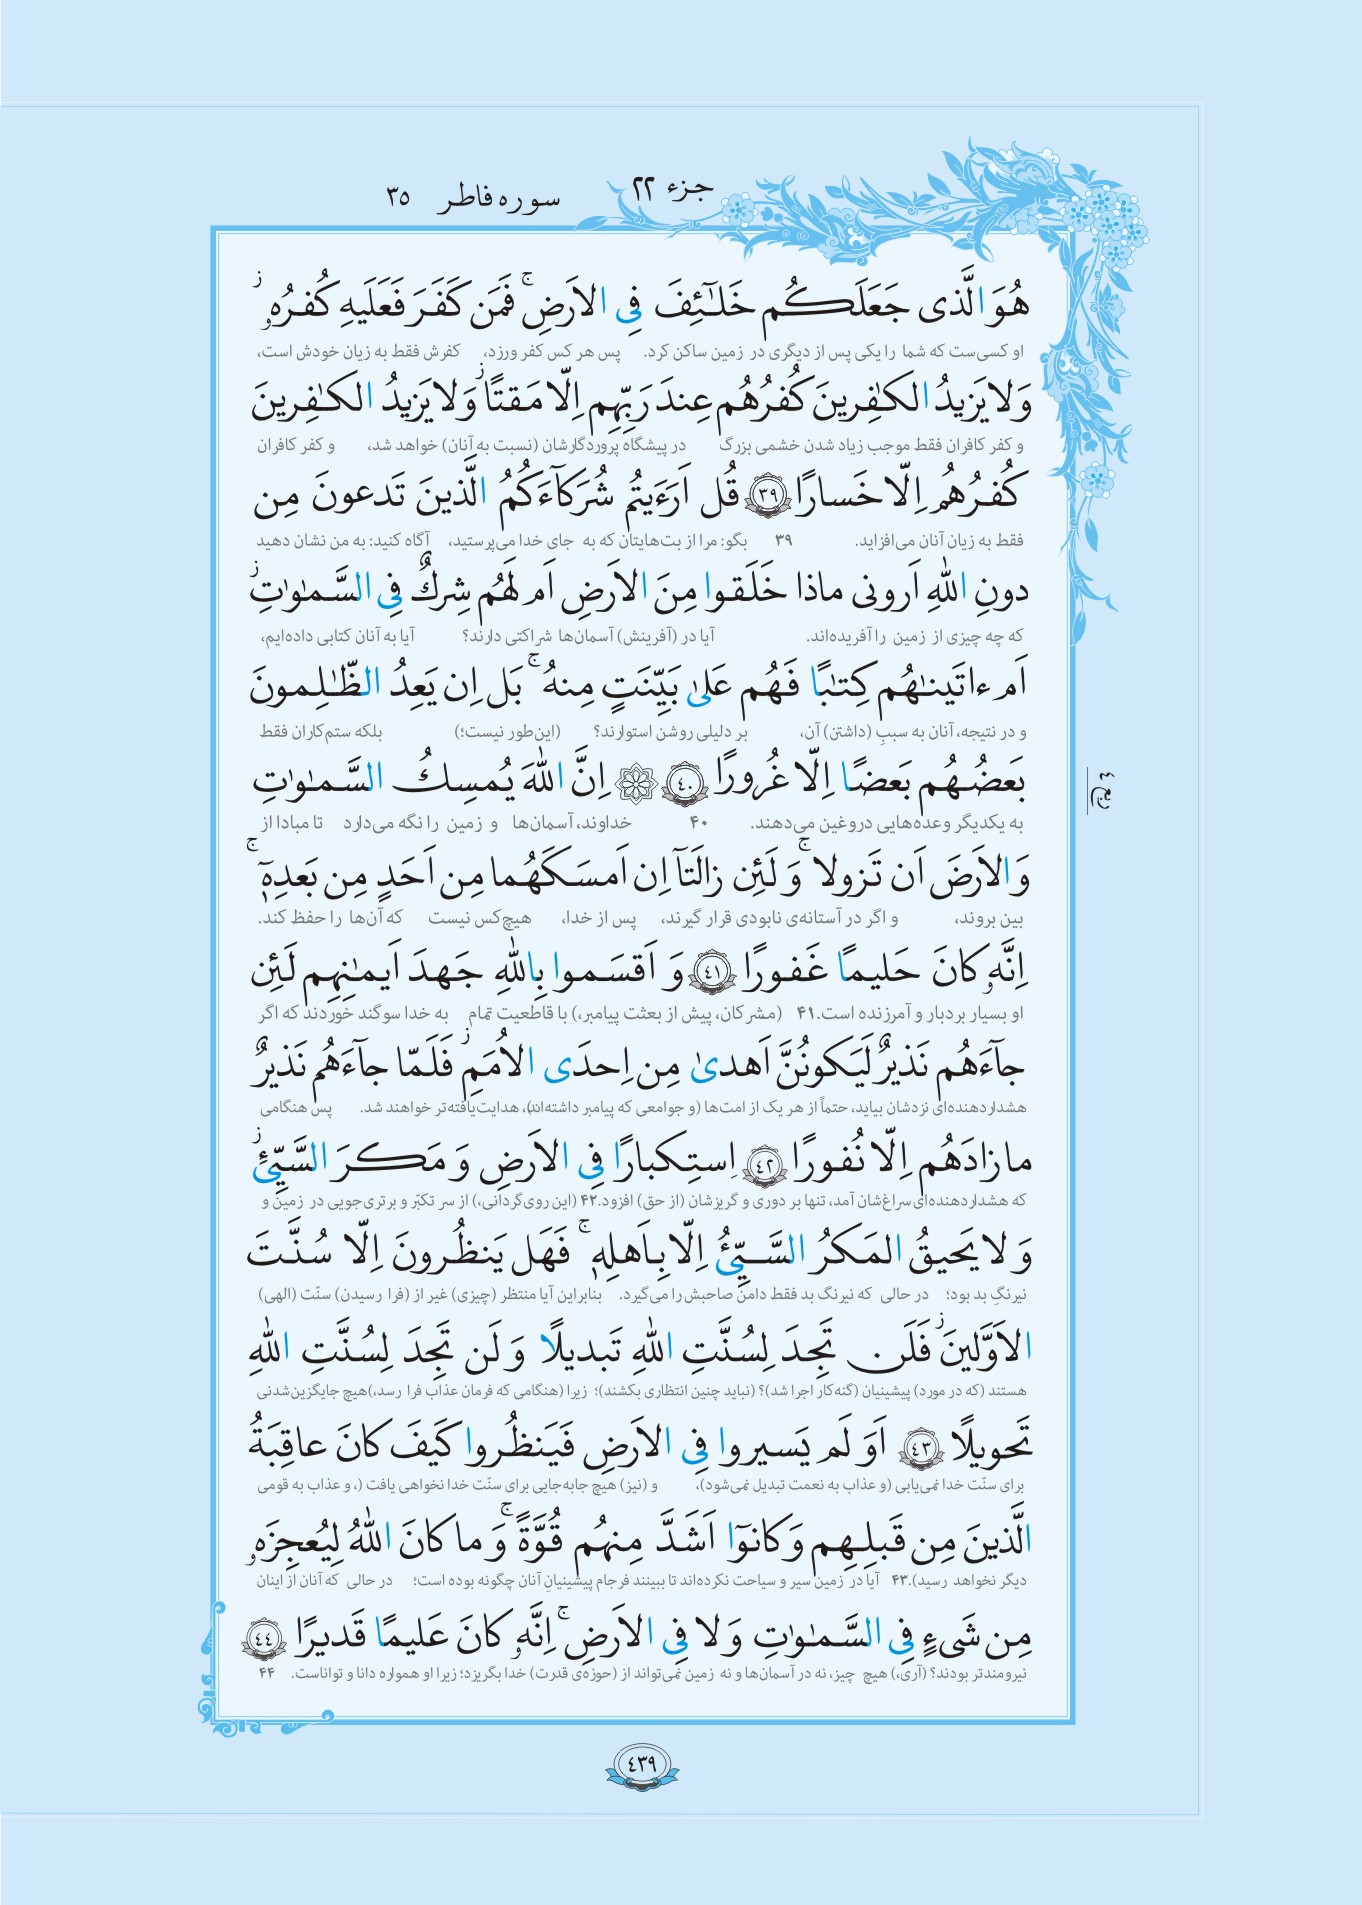 جزء ۲۲
سوره فاطر ۳۵
هُوَ الَّذی جَعَلَكُم خَلـٰٓئِفَ فِی الاَرضِ ۚ فَمَن كَفَرَ فَعَلَیهِ كُفرُهٗ ۖ
او کسی‌ست که شما را یکی پس از دیگری در زمین ساکن کرد. پس هر کس کفر ورزد، کفرش فقط به زیان خودش است،
وَلا یَزیدُ الكـٰفِرینَ كُفرُهُم عِندَ رَبِّهِم اِلّا مَقتًا ۖ وَلا یَزیدُ الكـٰفِرینَ
و کفر کافران فقط موجب زیاد شدن خشمی بزرگ در پیشگاه پروردگارشان (نسبت به آنان) خواهد شد، و کفر کافران
كُفرُهُم اِلّا خَسارًا ﴿٣٩﴾ قُل اَرَءَیتُم شُرَكآءَكُمُ الَّذینَ تَدعونَ مِن
فقط به زیان آنان می‌افزاید. ۳۹ بگو: مرا از بت‌هایتان که به جای خدا می‌پرستید، آگاه کنید: به من نشان دهید
دونِ اللّٰهِ اَرونی ماذا خَلَقوا مِنَ الاَرضِ اَم لَهُم شِركٌ فِی السَّمـٰوٰتِ ۖ
که چه چیزی از زمین را آفریده‌اند. آیا در (آفرینش) آسمان‌ها شراکتی دارند؟ آیا به آنان کتابی داده‌ایم،
اَم ءاتَینـٰهُم كِتـٰبًا فَهُم عَلىٰ بَیِّنَتٍ مِنهُ ۚ بَل اِن یَعِدُ الظّـٰلِمونَ
و در نتیجه، آنان به سببِ (داشتن) آن، بر دلیلی روشن استوارند؟ (این‌طور نیست؛) بلکه ستم‌کاران فقط
بَعضُهُم بَعضًا اِلّا غُرورًا ﴿٤٠﴾ ۞ اِنَّ اللّٰهَ یُمسِكُ السَّمـٰوٰتِ
ربع ٤
به یکدیگر وعده‌هایی دروغین می‌دهند. ۴۰ خداوند، آسمان‌ها و زمین را نگه می‌دارد تا مبادا از
وَالاَرضَ اَن تَزولا ۚ وَ لَئِن زالَتآ اِن اَمسَكَهُما مِن اَحَدٍ مِن بَعدِهٖٓ ۚ
بین بروند، و اگر در آستانه‌ی نابودی قرار گیرند، پس از خدا، هیچ‌کس نیست که آن‌ها را حفظ کند.
اِنَّهٗ كانَ حَلیمًا غَفورًا ﴿٤١﴾ وَ اَقسَموا بِاللّٰهِ جَهدَ اَیمـٰنِهِم لَئِن
او بسیار بردبار و آمرزنده است.۴۱ (مشرکان، پیش از بعثت پیامبر،) با قاطعیت تمام به خدا سوگند خوردند که اگر
جآءَهُم نَذیرٌ لَیَكونُنَّ اَهدىٰ مِن اِحدَى الاُمَمِ ۖ فَلَمّا جآءَهُم نَذیرٌ
هشداردهنده‌ای نزدشان بیاید، حتماً از هر یک از امت‌ها (و جوامعی که پیامبر داشته‌اند)، هدایت‌یافته‌تر خواهند شد. پس هنگامی
ما زادَهُم اِلّا نُفورًا ﴿٤٢﴾ اِستِكبارًا فِی الاَرضِ وَ مَكرَ السَّیِّئِ ۖ
که هشداردهنده‌ای سراغ‌شان آمد، تنها بر دوری و گریزشان (از حق) افزود.۴۲ (این روی‌گردانی،) از سر تکبّر و برتری‌جویی در زمین و
وَ لا یَحیقُ المَكرُ السَّیِّئُ اِلّا بِاَهلِهٖ ۚ فَهَل یَنظُرونَ اِلّا سُنَّتَ
نیرنگِ بد بود؛ در حالی که نیرنگ بد فقط دامن صاحبش را می‌گیرد. بنابراین آیا منتظر (چیزی) غیر از (فرا رسیدن) سنّت (الهی)
الاَوَّلینَ ۖ فَلَن تَجِدَ لِسُنَّتِ اللّٰهِ تَبدیلًا وَ لَن تَجِدَ لِسُنَّتِ اللّٰهِ
هستند (که در مورد) پیشینیان (گنه‌کار اجرا شد)؟ (نباید چنین انتظاری بکشند)؛ زیرا (هنگامی که فرمان عذاب فرا رسد،)هیچ جایگزین‌شدنی
تَحویلًا ﴿٤٣﴾ اَوَ لَم یَسیروا فِی الاَرضِ فَیَنظُروا كَیفَ كانَ عاقِبَةُ
برای سنّت خدا نمی‌یابی (و عذاب به نعمت تبدیل نمی‌شود)، و (نیز) هیچ جابه‌جایی برای سنّت خدا نخواهی یافت (، و عذاب به قومی
الَّذینَ مِن قَبلِهِم وَ كانوٓا اَشَدَّ مِنهُم قُوَّةً ۚ وَ ما كانَ اللّٰهُ لِیُعجِزَهٗ
دیگر نخواهد رسید).۴۳ آیا در زمین سیر و سیاحت نکرده‌اند تا ببینند فرجام پیشینیانِ آنان چگونه بوده است؛ در حالی که آنان از اینان
مِن شَیءٍ فِی السَّمـٰوٰتِ وَ لا فِی الاَرضِ ۚ اِنَّهٗ كانَ عَلیمًا قَدیرًا ﴿٤٤﴾
نیرومندتر بودند؟ (آری،) هیچ چیز، نه در آسمان‌ها و نه زمین نمی‌تواند از (حوزه‌ی قدرت) خدا بگریزد؛ زیرا او همواره دانا و تواناست. ۴۴
٤٣٩